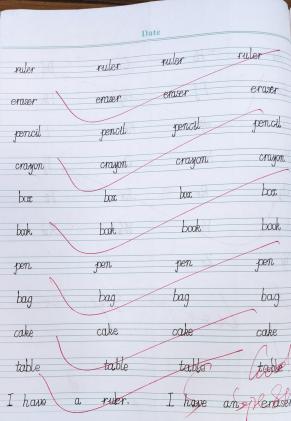 Date
ruler ruler ruler ruler
eraser eraser eraser eraser
pencil pencil pencil pencil
crayon crayon crayon crayon
box box box box
book book book book
pen pen pen pen
bag bag bag bag
cake cake cake cake
table table table table
I have a ruler. I have an eraser